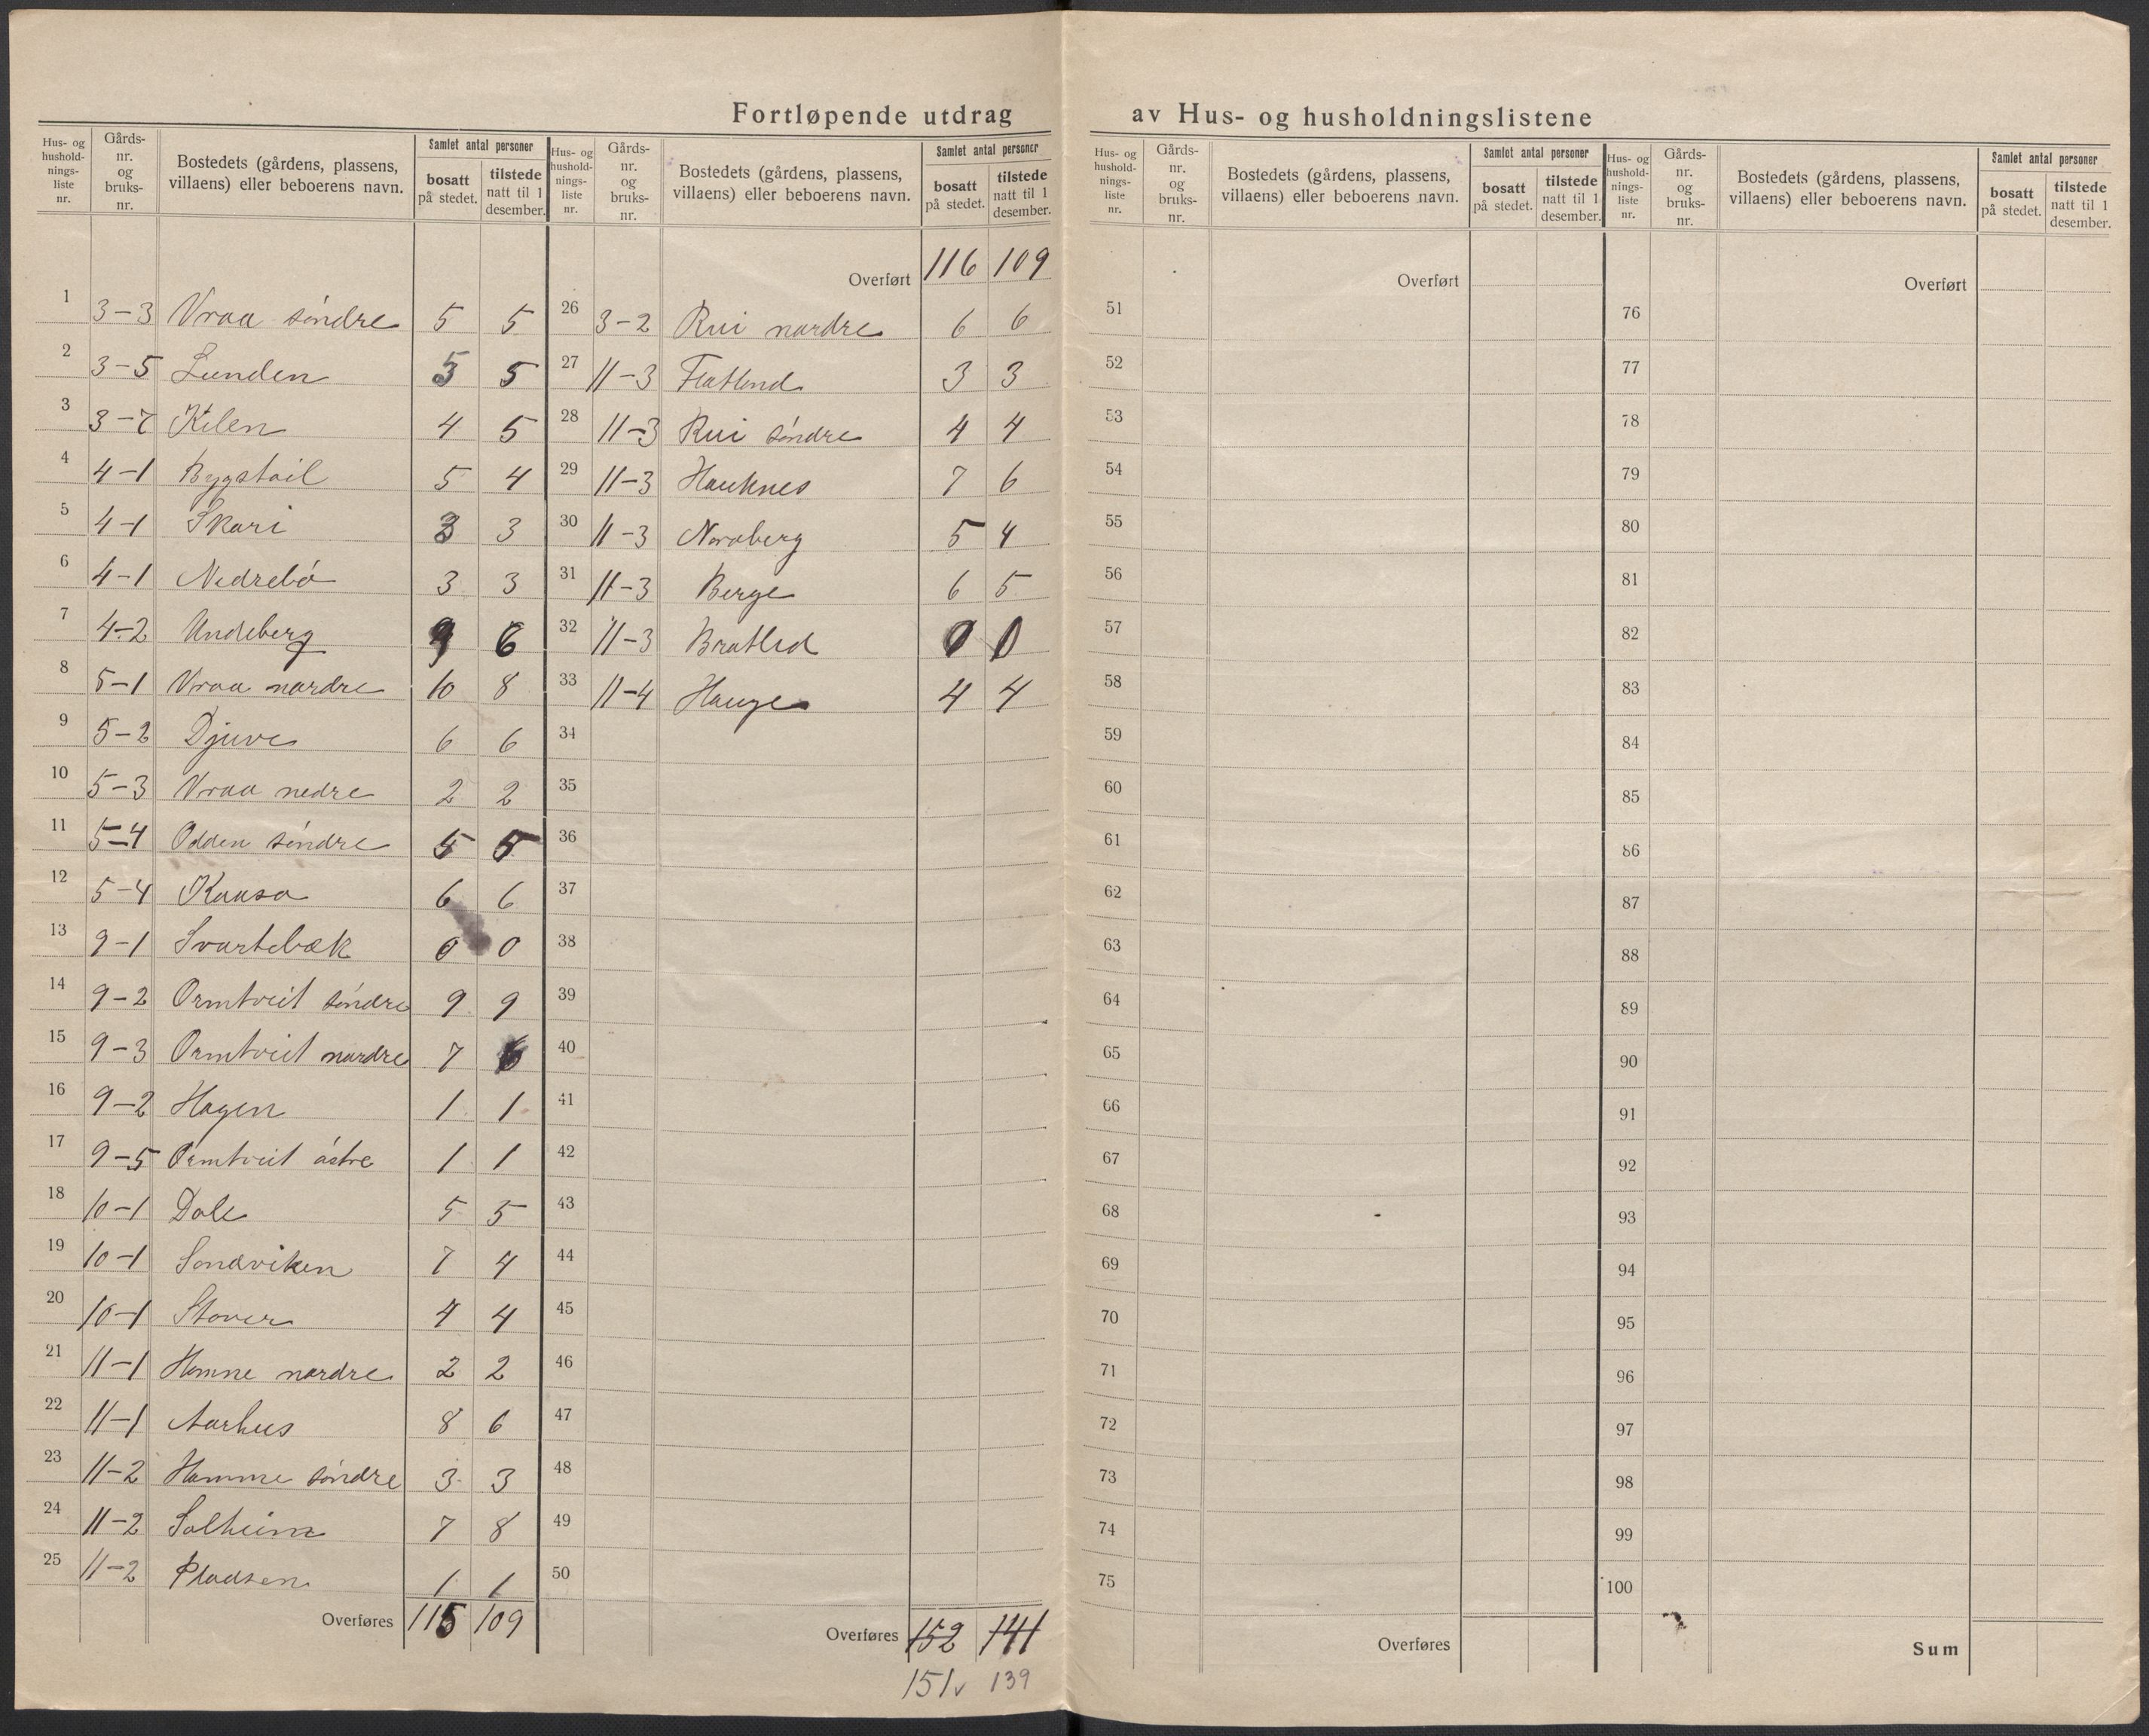 Fortløpende utdrag av Hus- og husholdningslistene
Hus- og hushold- nings- liste nr. | Gårds- nr. og bruks- nr. | Bostedets (gårdens, plassens, villaens) eller beboerens navn. | Samlet antal personer | bosatt på stedet. | tilstede natt til 1 desember.
1 3-3 Vraa søndre 5 5
2 3-5 Lunden 5 5
3 3-7 Kilen 4 5
4 4-1 Bygstøil 5 4
5 4-1 Skari 3 3
6 4-1 Nedrebø 3 3
7 4-2 Undeberg 9 6
8 5-1 Vraa nordre 10 8
9 5-2 Djuve 6 6
10 5-3 Vraa nedre 2 2
11 5-4 Odden søndre 5 5
12 5-4 Kaasa 6 6
13 9-1 Svartebæk 0 0
14 9-2 Ormtveit søndre 9 9
15 9-3 Ormtveit nordre 7 6
16 9-2 Hagen 1 1
17 9-5 Ormtveit østre 1 1
18 10-1 Dale 5 5
19 10-1 Sandviken 7 4
20 10-1 Stover 4 4
21 11-1 Homme nordre 2 2
22 11-1 Aarhus 8 6
23 11-2 Homme søndre 3 3
24 11-2 Solheim 7 8
25 11-2 Pladsen 1 1
Overføres 115 109
Hus- og hushold- nings- liste nr. | Gårds- nr. og bruks- nr. | Bostedets (gårdens, plassens, villaens) eller beboerens navn. | Samlet antal personer | bosatt på stedet. | tilstede natt til 1 desember.
Overført 116 109
26 3-2 Rui nordre 6 6
27 11-3 Flatland 3 3
28 11-3 Rui søndre 4 4
29 11-3 Hauknes 7 6
30 11-3 Nordberg 5 4
31 11-3 Berge 6 5
32 11-3 Bratlid 0 0
33 11-4 Hauge 4 4
34
35
36
37
38
39
40
41
42
43
44
45
46
47
48
49
50
Overføres 152 141
151 139
Hus- og hushold- nings- liste nr. | Gårds- nr. og bruks- nr. | Bostedets (gårdens, plassens, villaens) eller beboerens navn. | Samlet antal personer | bosatt på stedet. | tilstede natt til 1 desember.
Overført
51
52
53
54
55
56
57
58
59
60
61
62
63
64
65
66
67
68
69
70
71
72
73
74
75
Overføres
Hus- og hushold- nings- liste nr. | Gårds- nr. og bruks- nr. | Bostedets (gårdens, plassens, villaens) eller beboerens navn. | Samlet antal personer | bosatt på stedet. | tilstede natt til 1 desember.
Overført
76
77
78
79
80
81
82
83
84
85
86
87
88
89
90
91
92
93
94
95
96
97
98
99
100
Sum